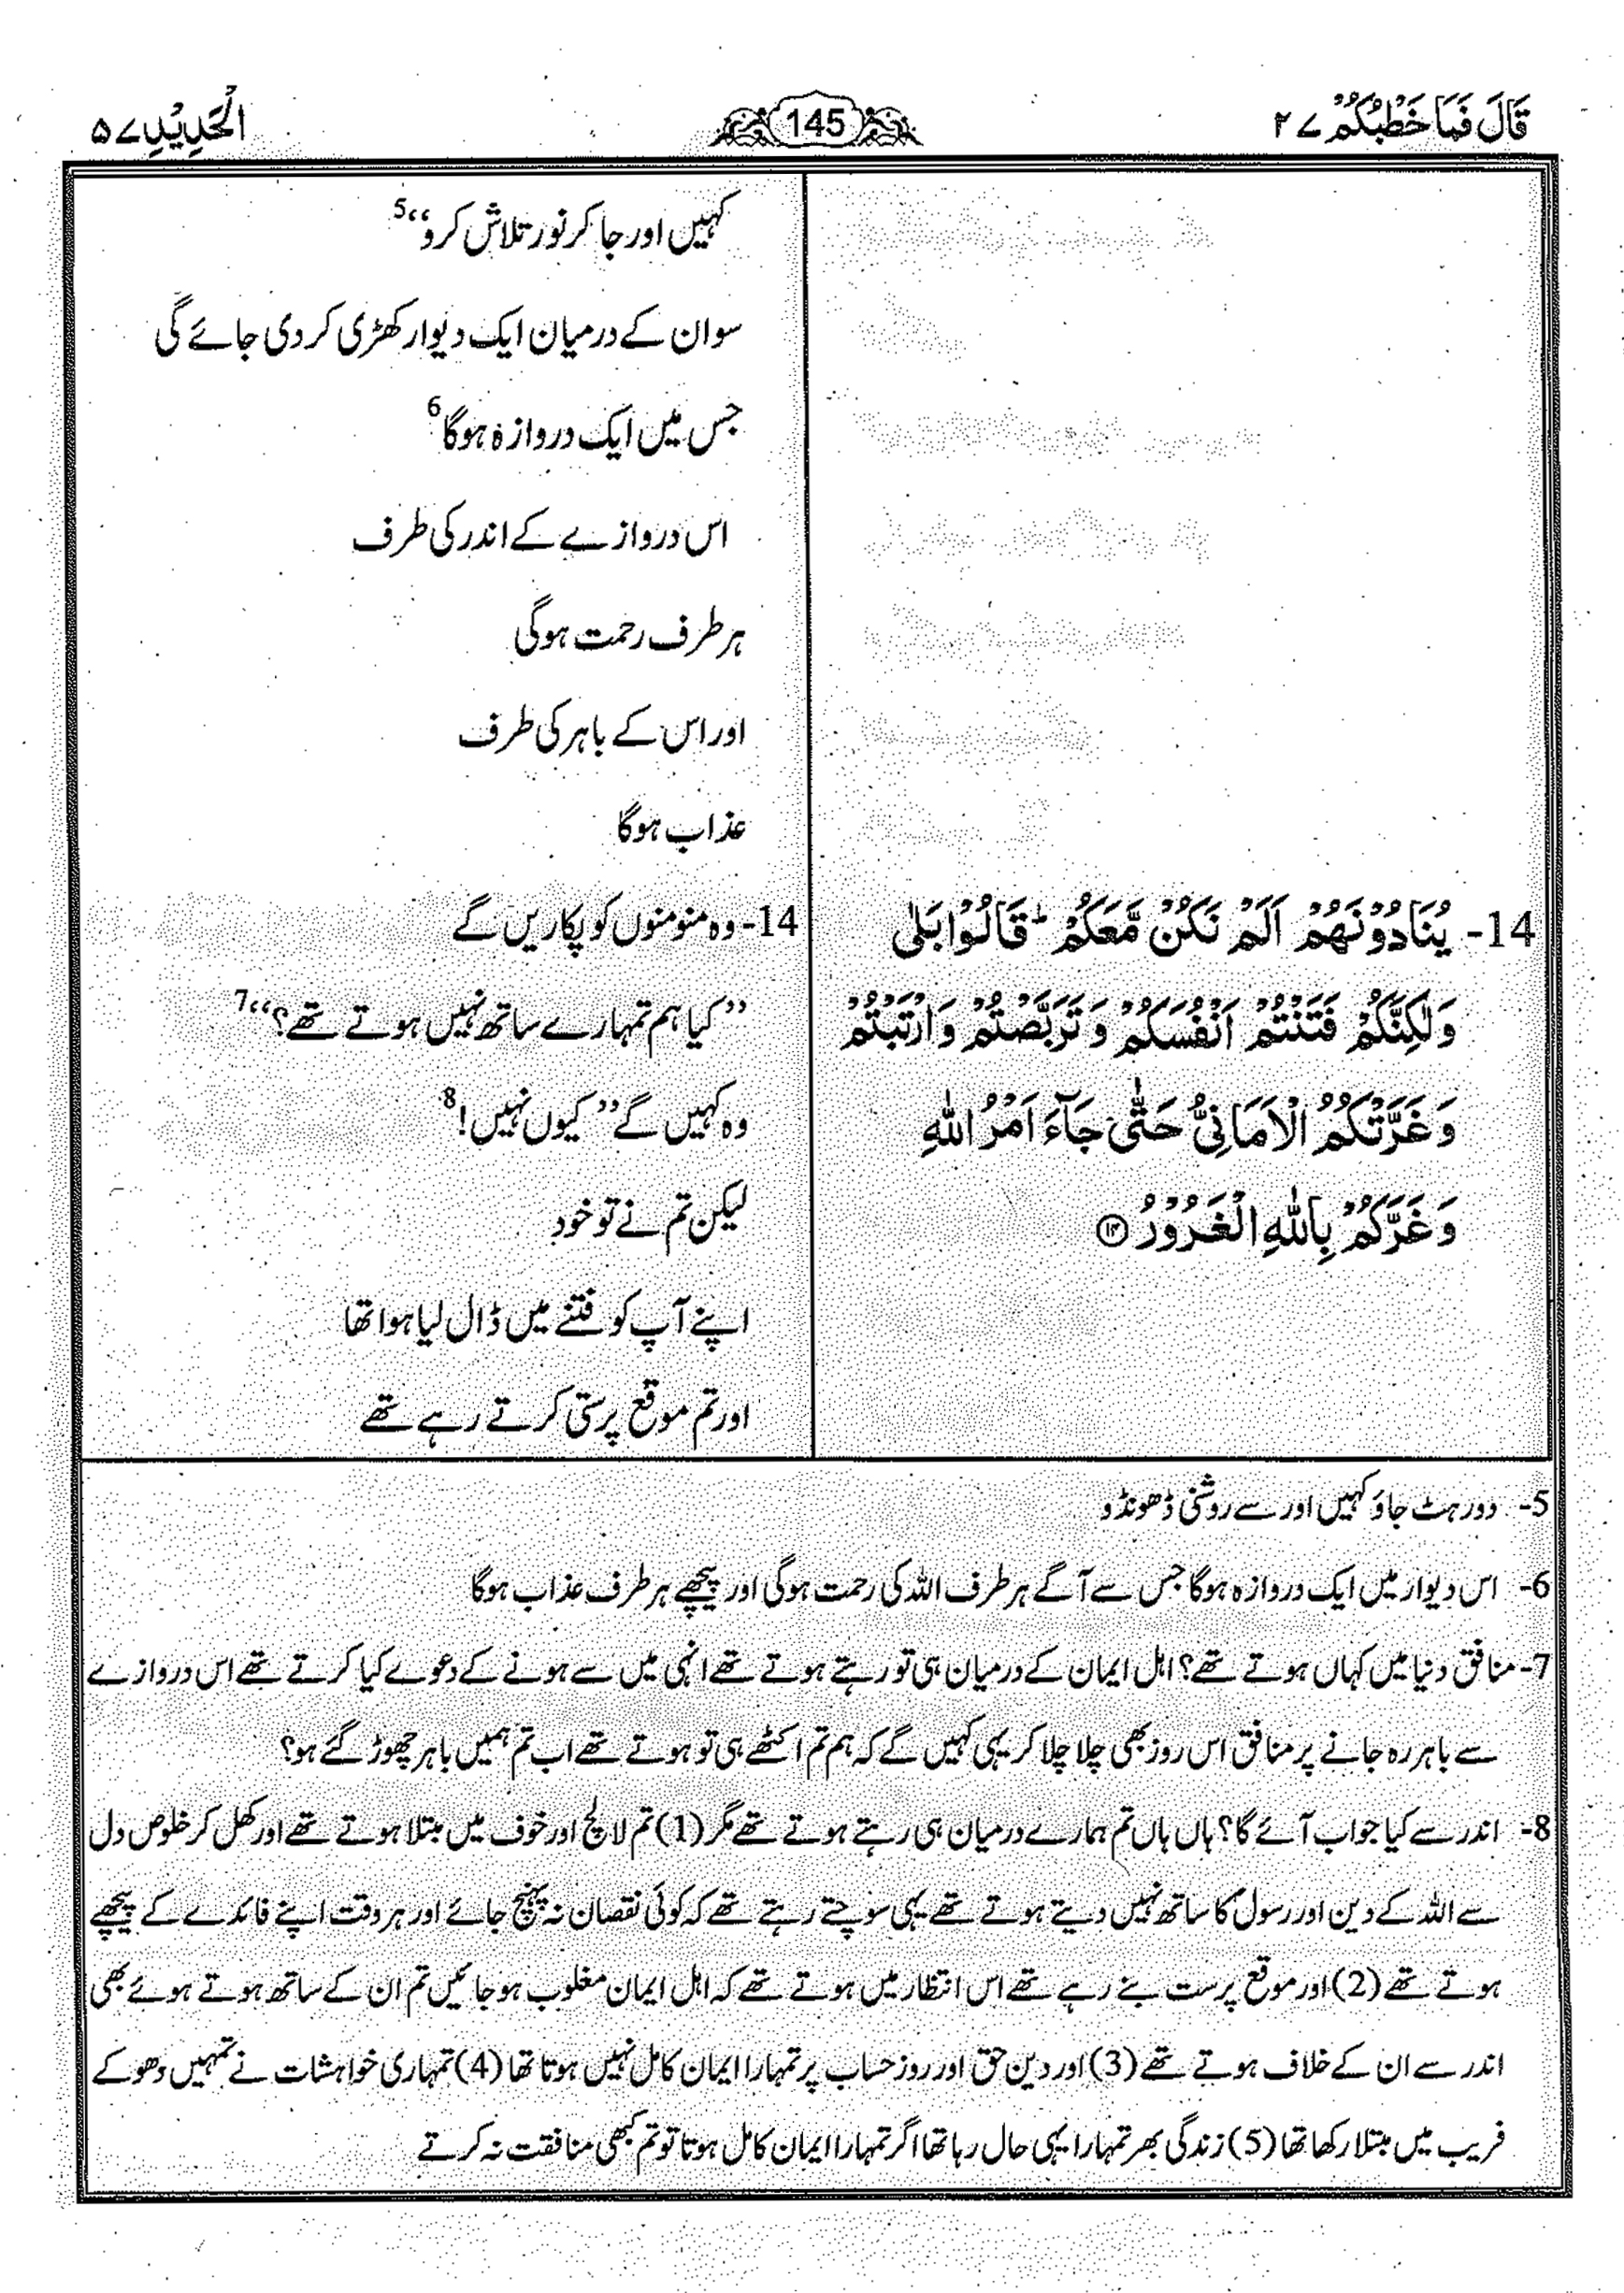 قَالَ فَمَا خَطْبُكُمْ ۲۷
145
الْحَدِيْدِ ۵۷
کہیں اور جا کر نور تلاش کرو“5
سو ان کے درمیان ایک دیوار کھڑی کر دی جائے گی
جس میں ایک دروازہ ہوگا6
اس دروازے کے اندر کی طرف
ہر طرف رحمت ہوگی
اور اس کے باہر کی طرف
عذاب ہوگا
14- يُنَادُوْنَهُمْ اَلَمْ نَكُنْ مَّعَكُمْ ؕ قَالُوْا بَلٰى
وَلٰكِنَّكُمْ فَتَنْتُمْ اَنْفُسَكُمْ وَ تَرَبَّصْتُمْ وَ ارْتَبْتُمْ
وَ غَرَّتْكُمُ الْاَمَانِيُّ حَتّٰى جَآءَ اَمْرُ اللّٰهِ
وَ غَرَّكُمْ بِاللّٰهِ الْغَرُوْرُ ۝۱۴
14- وہ منومنوں کو پکاریں گے
”کیا ہم تمہارے ساتھ نہیں ہوتے تھے؟“7
وہ کہیں گے ”کیوں نہیں!8
لیکن تم نے تو خود
اپنے آپ کو فتنے میں ڈال لیا ہوا تھا
اور تم موقع پرستی کرتے رہے تھے
5- دور ہٹ جاؤ کہیں اور سے روشنی ڈھونڈو
6- اس دیوار میں ایک دروازہ ہوگا جس سے آگے ہر طرف اللہ کی رحمت ہوگی اور پیچھے ہر طرف عذاب ہوگا
7- منافق دنیا میں کہاں ہوتے تھے؟ اہل ایمان کے درمیان ہی تو رہتے ہوتے تھے انہی میں سے ہونے کے دعوے کیا کرتے تھے اس دروازے
سے باہر رہ جانے پر منافق اس روز بھی چلا چلا کر یہی کہیں گے کہ ہم تم اکٹھے ہی تو ہوتے تھے اب تم ہمیں باہر چھوڑ گئے ہو؟
8- اندر سے کیا جواب آئے گا؟ ہاں ہاں تم ہمارے درمیان ہی رہتے ہوتے تھے مگر (1) تم لالچ اور خوف میں مبتلا ہوتے تھے اور کھل کر خلوص دل
سے اللہ کے دین اور رسولؐ کا ساتھ نہیں دیتے ہوتے تھے یہی سوچتے رہتے تھے کہ کوئی نقصان نہ پہنچ جائے اور ہر وقت اپنے فائدے کے پیچھے
ہوتے تھے (2) اور موقع پرست بنے رہے تھے اس انتظار میں ہوتے تھے کہ اہل ایمان مغلوب ہو جائیں تم ان کے ساتھ ہوتے ہوئے بھی
اندر سے ان کے خلاف ہوتے تھے (3) اور دین حق اور روز حساب پر تمہارا ایمان کامل نہیں ہوتا تھا (4) تمہاری خواہشات نے تمہیں دھوکے
فریب میں مبتلا رکھا تھا (5) زندگی بھر تمہارا یہی حال رہا تھا اگر تمہارا ایمان کامل ہوتا تو تم کبھی منافقت نہ کرتے